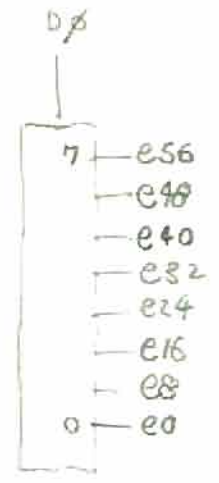 DØ
7 e56
e48
e40
e32
e24
e16
e8
0 e0